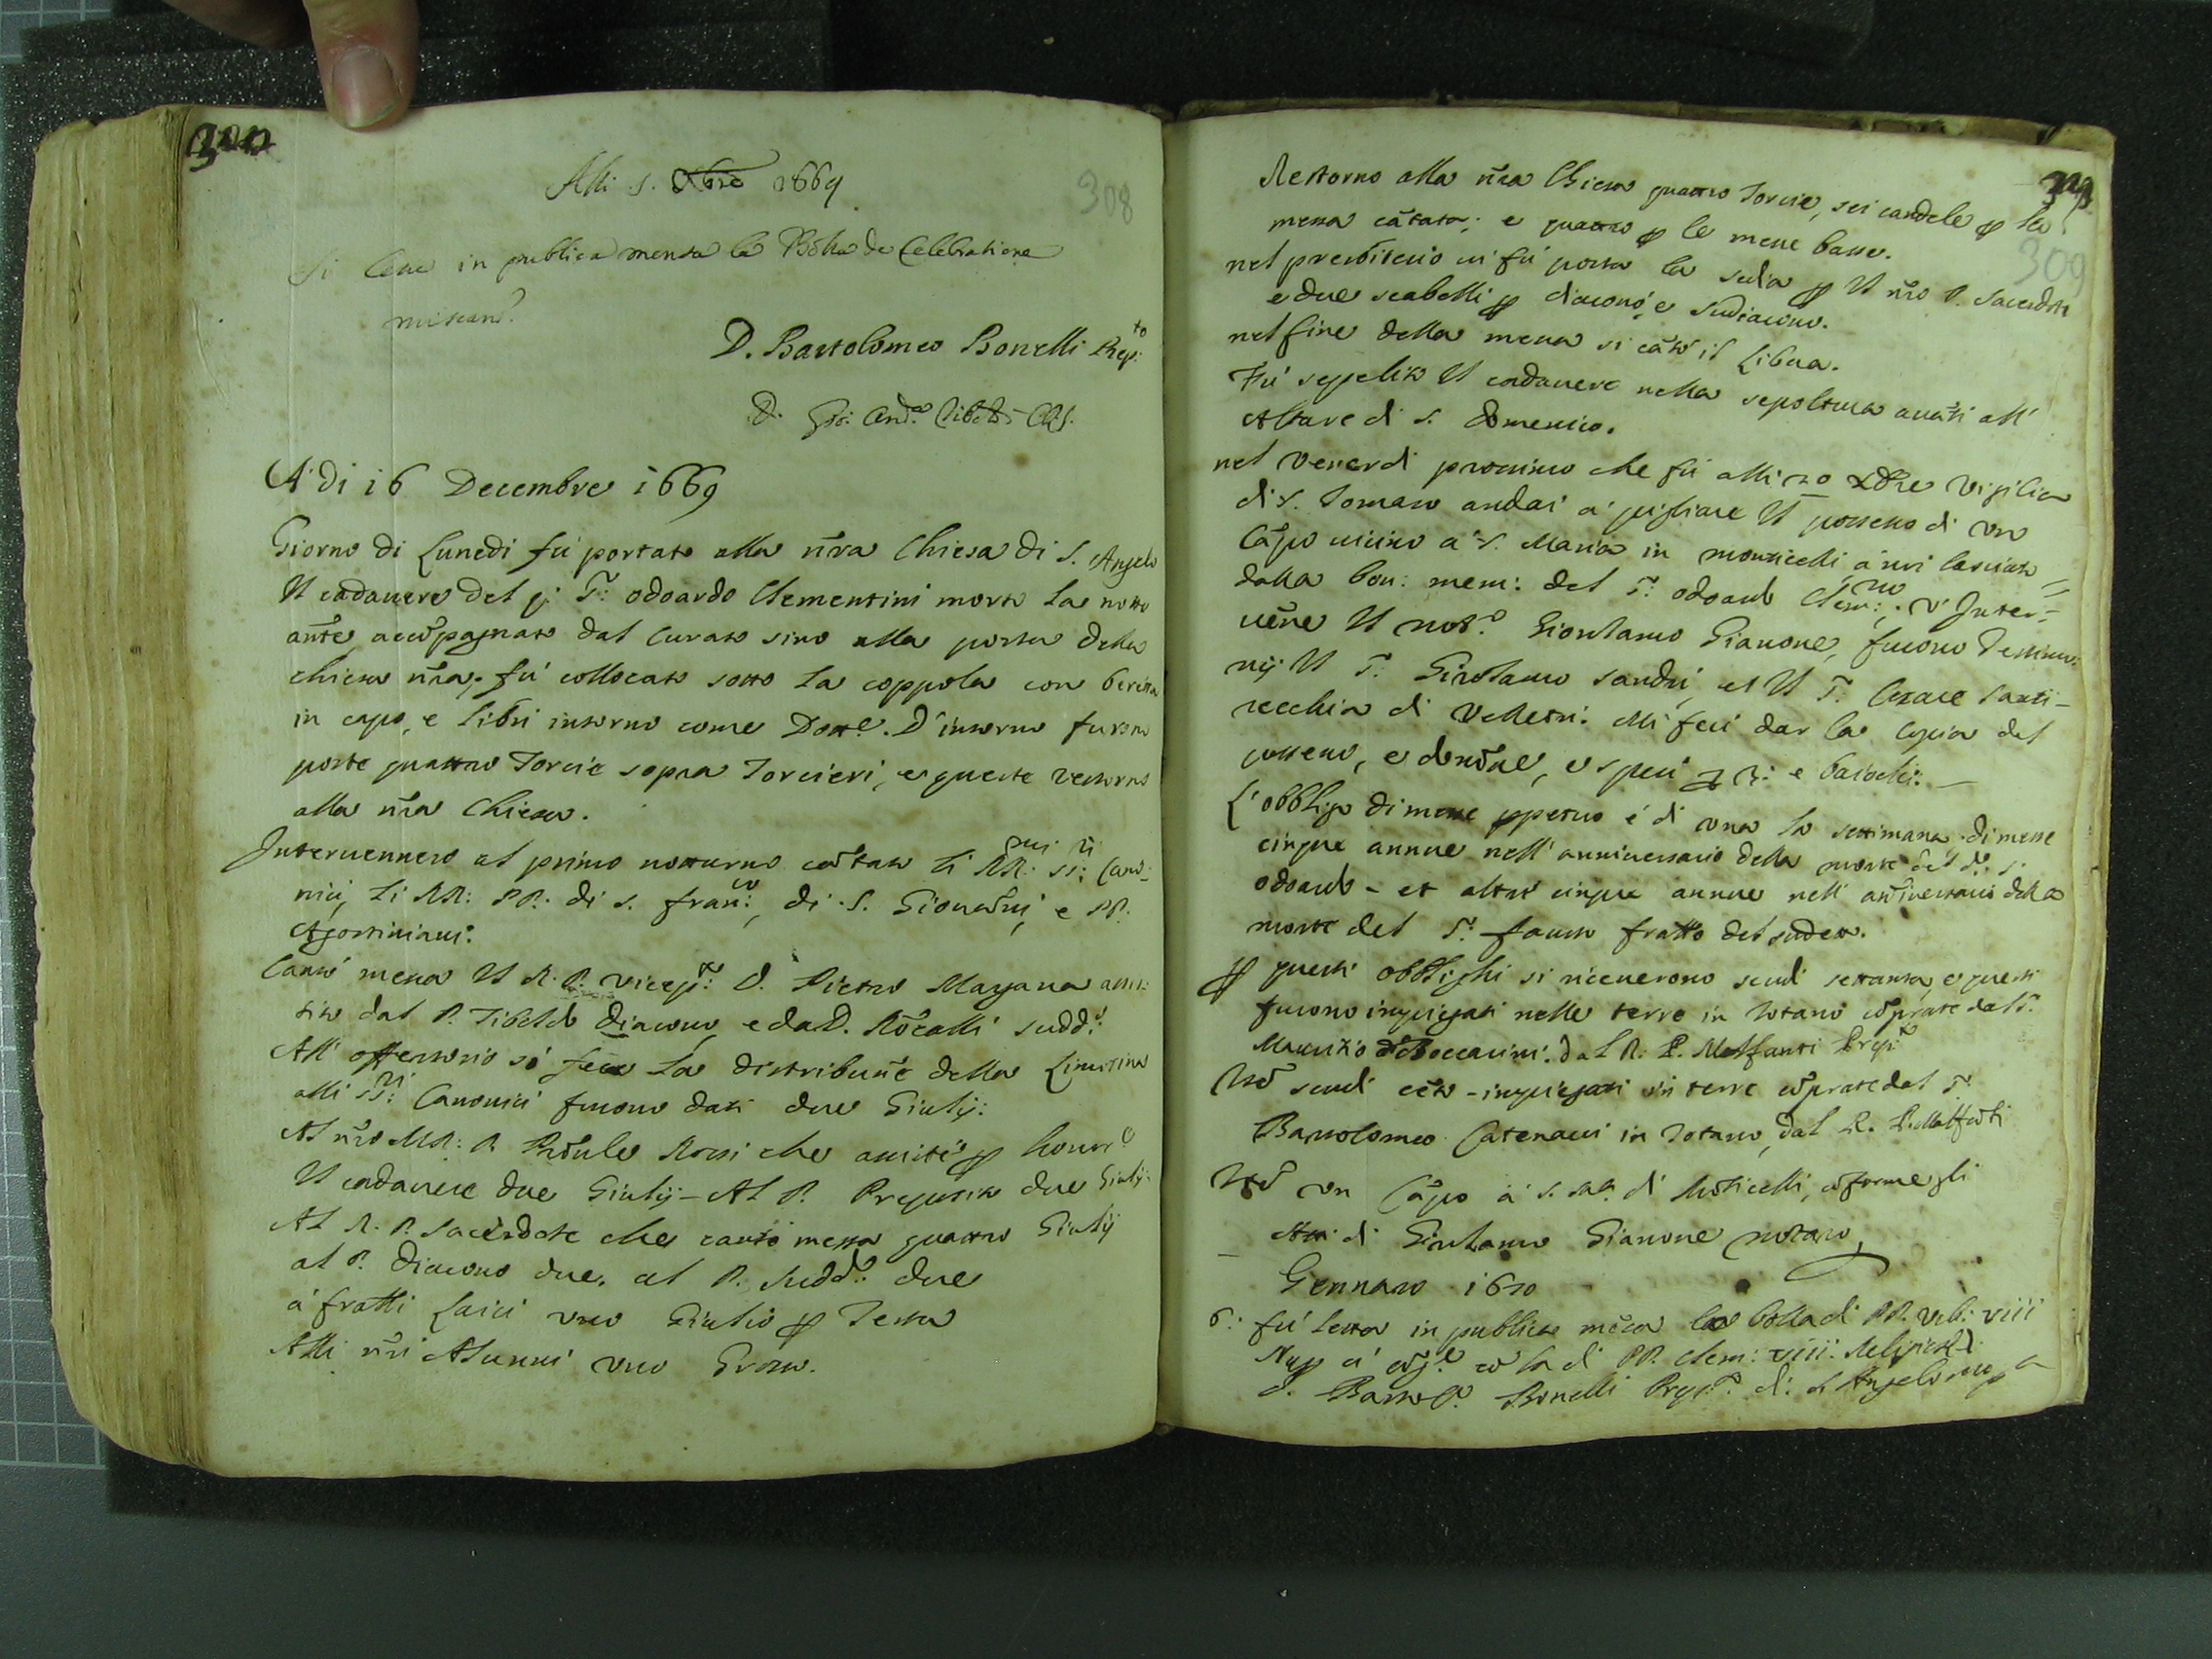 308
Alli 5. Xbre 1669
Si lesse in publica mensa la Bolla de Celebratione
missarū.
D. Bartolomeo Bonelli Prep:to
D.
A' di 16 Decembre 1669
Giorno di Lunedi fù portato alla nr̃a Chiesa di S. Angelo
Il cadavere del q: Sr: odoardo Clementini morto la notte
ante accōpagnato dal Curato sino alla porta della
chiesa nr̃a, fù collocato sotto la coppola con beretta
in capo, e libri intorno come Dotte. D'intorno furono
poste quattro Torcie sopra Torcieri, e queste restorno
alla nr̃a Chiesa.
Intervennero al primo notturno cantato li RR:mi SS:ri Cano=
nici, li RR: PP. di S. Fran:co, di S. Giovāni, e PP.
Agostiniani.
Cantò messa Il R. P. Vicep:to D. Pietro Magana assis:
tito dal P. Tibaldo Diacono, e da D. Rōcalli sudd:o
All' offertorio si fece la distribuñe della Limosina
alli SS:ri Canonici furono dati due Giulij:
Al nr̃o MR: P. Rossi che assisté ꝑ
Il cadavere due Giulij - Al P. Preposito due Giulij:
Al R. P. Sacerdote che cantò messa quattro Giulij
al P. Diacono due. al P. Sudd:o due
á fratti Laici uno Giulio ꝑ Testa
Alli nr̃i Alunni uno Grosso.
309
Restorno alla nr̃a Chiesa quattro Torcie, sei candele ꝑ la
messa cātata; e quattro ꝑ le messe basse.
nel presbiterio vi fù posta la sedia ꝑ Il nr̃o P. Sacerdote
e due scabelli ꝑ diacono, e sudiacono.
nel fine della messa si cātò il Libera.
Fú sepelito Il cadavere nella sepoltura avāti all'
Altare di S. Domenico.
nel Venerdi prossimo che fù alli 20 Xbre Vigilia
di S. Tomaso andai á pigliare Il possesso di un
Cāpo vicino a S. Maria in monticelli á noi lasciato
dalla bon: mem: del Sr: odoardo Clem:no. v' Inter=
vēne Il not:o Girolamo Gianone, furono Testimo:
nij Il Sr: Girolamo Sandri, et Il Sr: Cesare Santi-
recchia di Velletri. Mi feci dar la Copia del
possesso, e e spesi e baiochi: -
L'obbligo di messe ꝑpetuo é di una la settimana. di messe
cinque annue nell' anniversario della morte del d:o Sr
odoardo - et altre cinque annue nell' anniversario della
morte del Sr: fausto fratto del sudetto.
ꝑ questi obblighi si riceverono scudi settanta, e questi
furono impiegati nelle terre in Totano cōprate dal Sr
Maurizio Boccarini. dal R. P. Malfanti Prep:to
Itē scudi cēto - impiegati in terre cōprate dal Sr.
Bartolomeo Catenacci in Totano, dal R. P. Malfāti
Itē un Cāpo á S. Ma. di Mōticelli, cōforme gli
Atti di Girolamo Gianone notaro,
Gennaro 1670
6: fú letta in publica mēsa la bolla di PP. Urb: viii
Nuꝑ á cōla di PP. Clem: viii:
D. Bartol:o Bonelli Prep:to di S. Angelo